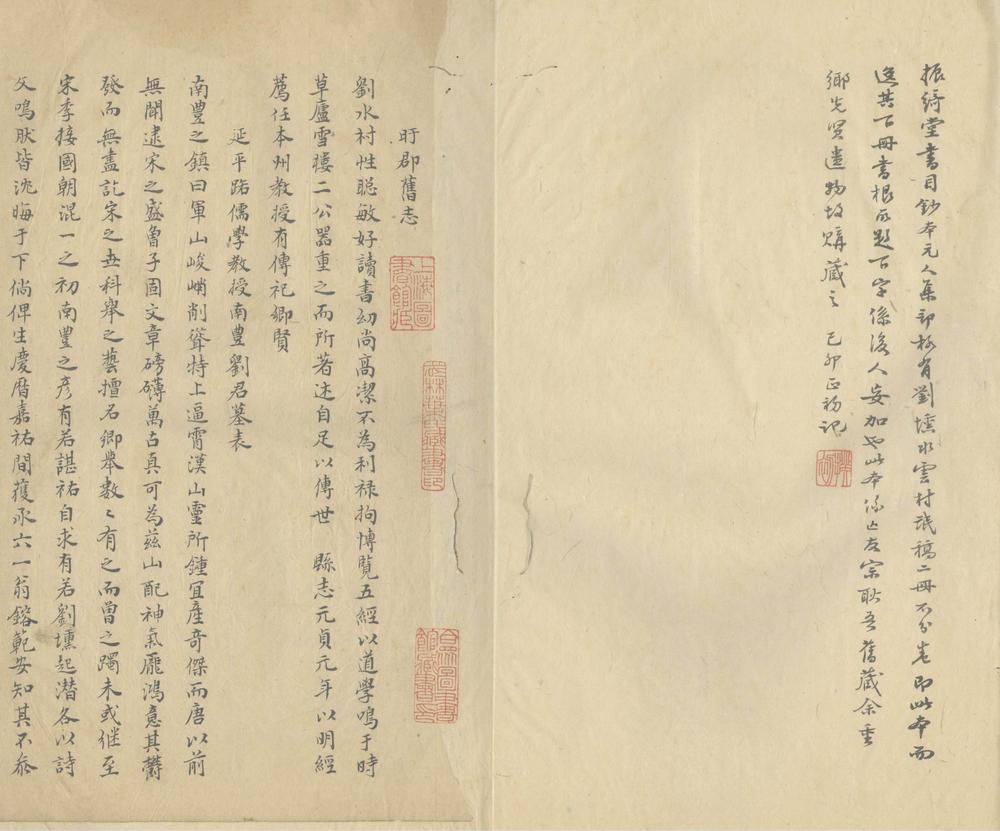 振綺堂書目鈔本元人集部稱有劉壎水雲村泯稿二冊不分卷即此本而
逸其下冊書根所題下字係後人妄加也此本係亡友宗耿吾舊藏余重
鄉先賢遺物故購藏之 己卯正初記
揆初
盱郡舊志
上海圖書館藏
武林葉氏藏書印
合眾圖書館藏書印
劉水村性聰敏好讀書幼尚高潔不為利祿拘博覽五經以道學鳴于時
草廬雪樓二公器重之而所著述自足以傳世 縣志元貞元年以明經
薦任本州教授有傳祀鄉賢
延平路儒學教授南豐劉君墓表
南豐之鎮曰軍山峻峭削聳特上逼霄漢山靈所鍾宜產奇傑而唐以前
無聞逮宋之盛魯子固文章磅礴萬古真可為茲山配神氣龐鴻意其欝
發而無盡訖宋之世科舉之藝擅名鄉舉數〻有之而曾之躅未或繼至
宋季接國朝混一之初南豐之彥有若諶祐自求有若劉壎起潛各以詩
文鳴肰皆沈晦于下倘俾生慶曆嘉祐間獲承六一翁鎔範安知其不叅